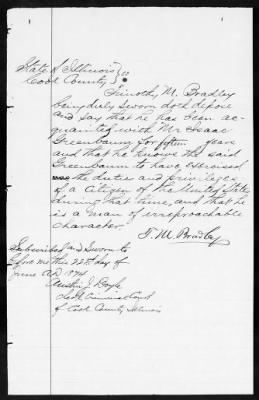 State of Illinois } ss
Cook County
Timothy M. Bradley
being duly sworn doth depose
and say that he has been ac-
quainted with Mr Isaac
Greenbaum for fifteen years
and that he knows the said
Greenbaum to have exercised
the duties and privileges
of a Citizen of the United States
during that time, and that he
is a man of irreproachable
character.
T. M. Bradley
Subscribed and Sworn to
before me this 22d day of
June AD 1874
Austin J Doyle
Clerk Criminal Court
of Cook County Illinois